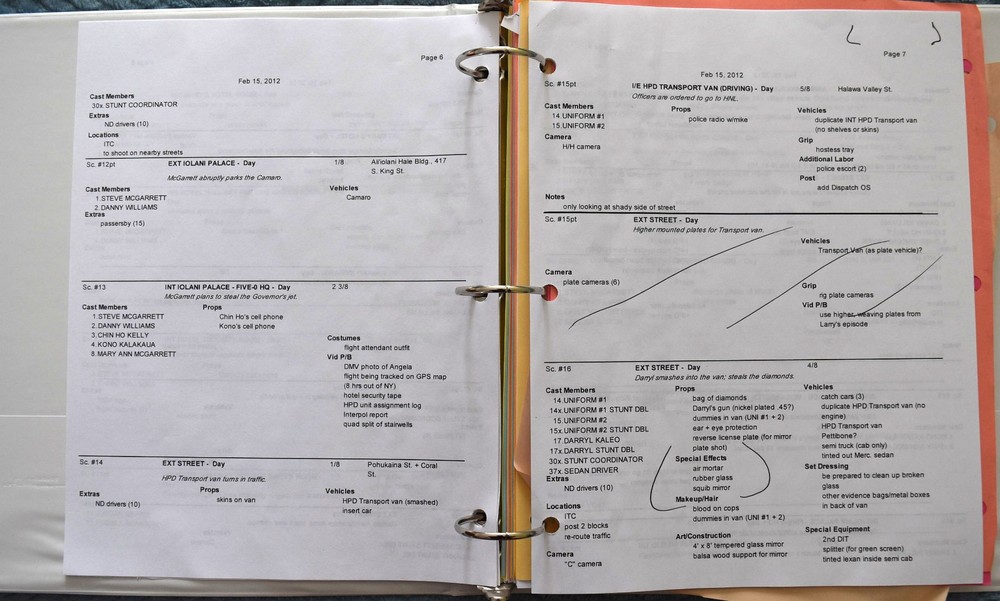 Page 6
Feb 15, 2012
Cast Members
30x. STUNT COORDINATOR
Extras
ND drivers (10)
Locations
ITC
to shoot on nearby streets
Sc. #12pt EXT IOLANI PALACE - Day 1/8 Ali'iolani Hale Bldg., 417
S. King St.
McGarrett abruptly parks the Camaro.
Cast Members Vehicles
1. STEVE MCGARRETT Camaro
2. DANNY WILLIAMS
Extras
passersby (15)
Sc. #13 INT IOLANI PALACE - FIVE-0 HQ - Day 2 3/8
McGarrett plans to steal the Governor's jet.
Cast Members Props
1. STEVE MCGARRETT Chin Ho's cell phone
2. DANNY WILLIAMS Kono's cell phone
3. CHIN HO KELLY
4. KONO KALAKAUA
8. MARY ANN MCGARRETT
Costumes
flight attendant outfit
Vid P/B
DMV photo of Angela
flight being tracked on GPS map
(8 hrs out of NY)
hotel security tape
HPD unit assignment log
Interpol report
quad split of stairwells
Sc. #14 EXT STREET - Day 1/8 Pohukaina St. + Coral
St.
HPD Transport van turns in traffic.
Extras Props Vehicles
ND drivers (10) skins on van HPD Transport van (smashed)
insert car
Page 7
Feb 15, 2012
Sc. #15pt I/E HPD TRANSPORT VAN (DRIVING) - Day 5/8 Halawa Valley St.
Officers are ordered to go to HNL.
Cast Members Props Vehicles
14. UNIFORM #1 police radio w/mike duplicate INT HPD Transport van
15. UNIFORM #2 (no shelves or skins)
Camera Grip
H/H camera hostess tray
Additional Labor
police escort (2)
Post
add Dispatch OS
Notes
only looking at shady side of street
Sc. #15pt EXT STREET - Day
Higher mounted plates for Transport van.
Vehicles
Transport Van (as plate vehicle)?
Camera
plate cameras (6)
Grip
rig plate cameras
Vid P/B
use higher, weaving plates from
Larry's episode
Sc. #16 EXT STREET - Day 4/8
Darryl smashes into the van; steals the diamonds.
Cast Members Props Vehicles
14. UNIFORM #1 bag of diamonds catch cars (3)
14x. UNIFORM #1 STUNT DBL Darryl's gun (nickel plated .457) duplicate HPD Transport van (no
15. UNIFORM #2 dummies in van (UNI #1 + 2) engine)
15x. UNIFORM #2 STUNT DBL ear + eye protection HPD Transport van
17. DARRYL KALEO reverse license plate (for mirror Pettibone?
17x. DARRYL STUNT DBL plate shot) semi truck (cab only)
30x. STUNT COORDINATOR Special Effects tinted out Merc. sedan
37x. SEDAN DRIVER air mortar Set Dressing
Extras rubber glass be prepared to clean up broken
ND drivers (10) squib mirror glass
Makeup/Hair other evidence bags/metal boxes
Locations blood on cops in back of van
ITC dummies in van (UNI #1 + 2)
post 2 blocks Special Equipment
re-route traffic Art/Construction 2nd DIT
4' x 8' tempered glass mirror splitter (for green screen)
Camera balsa wood support for mirror tinted lexan inside semi cab
"C" camera